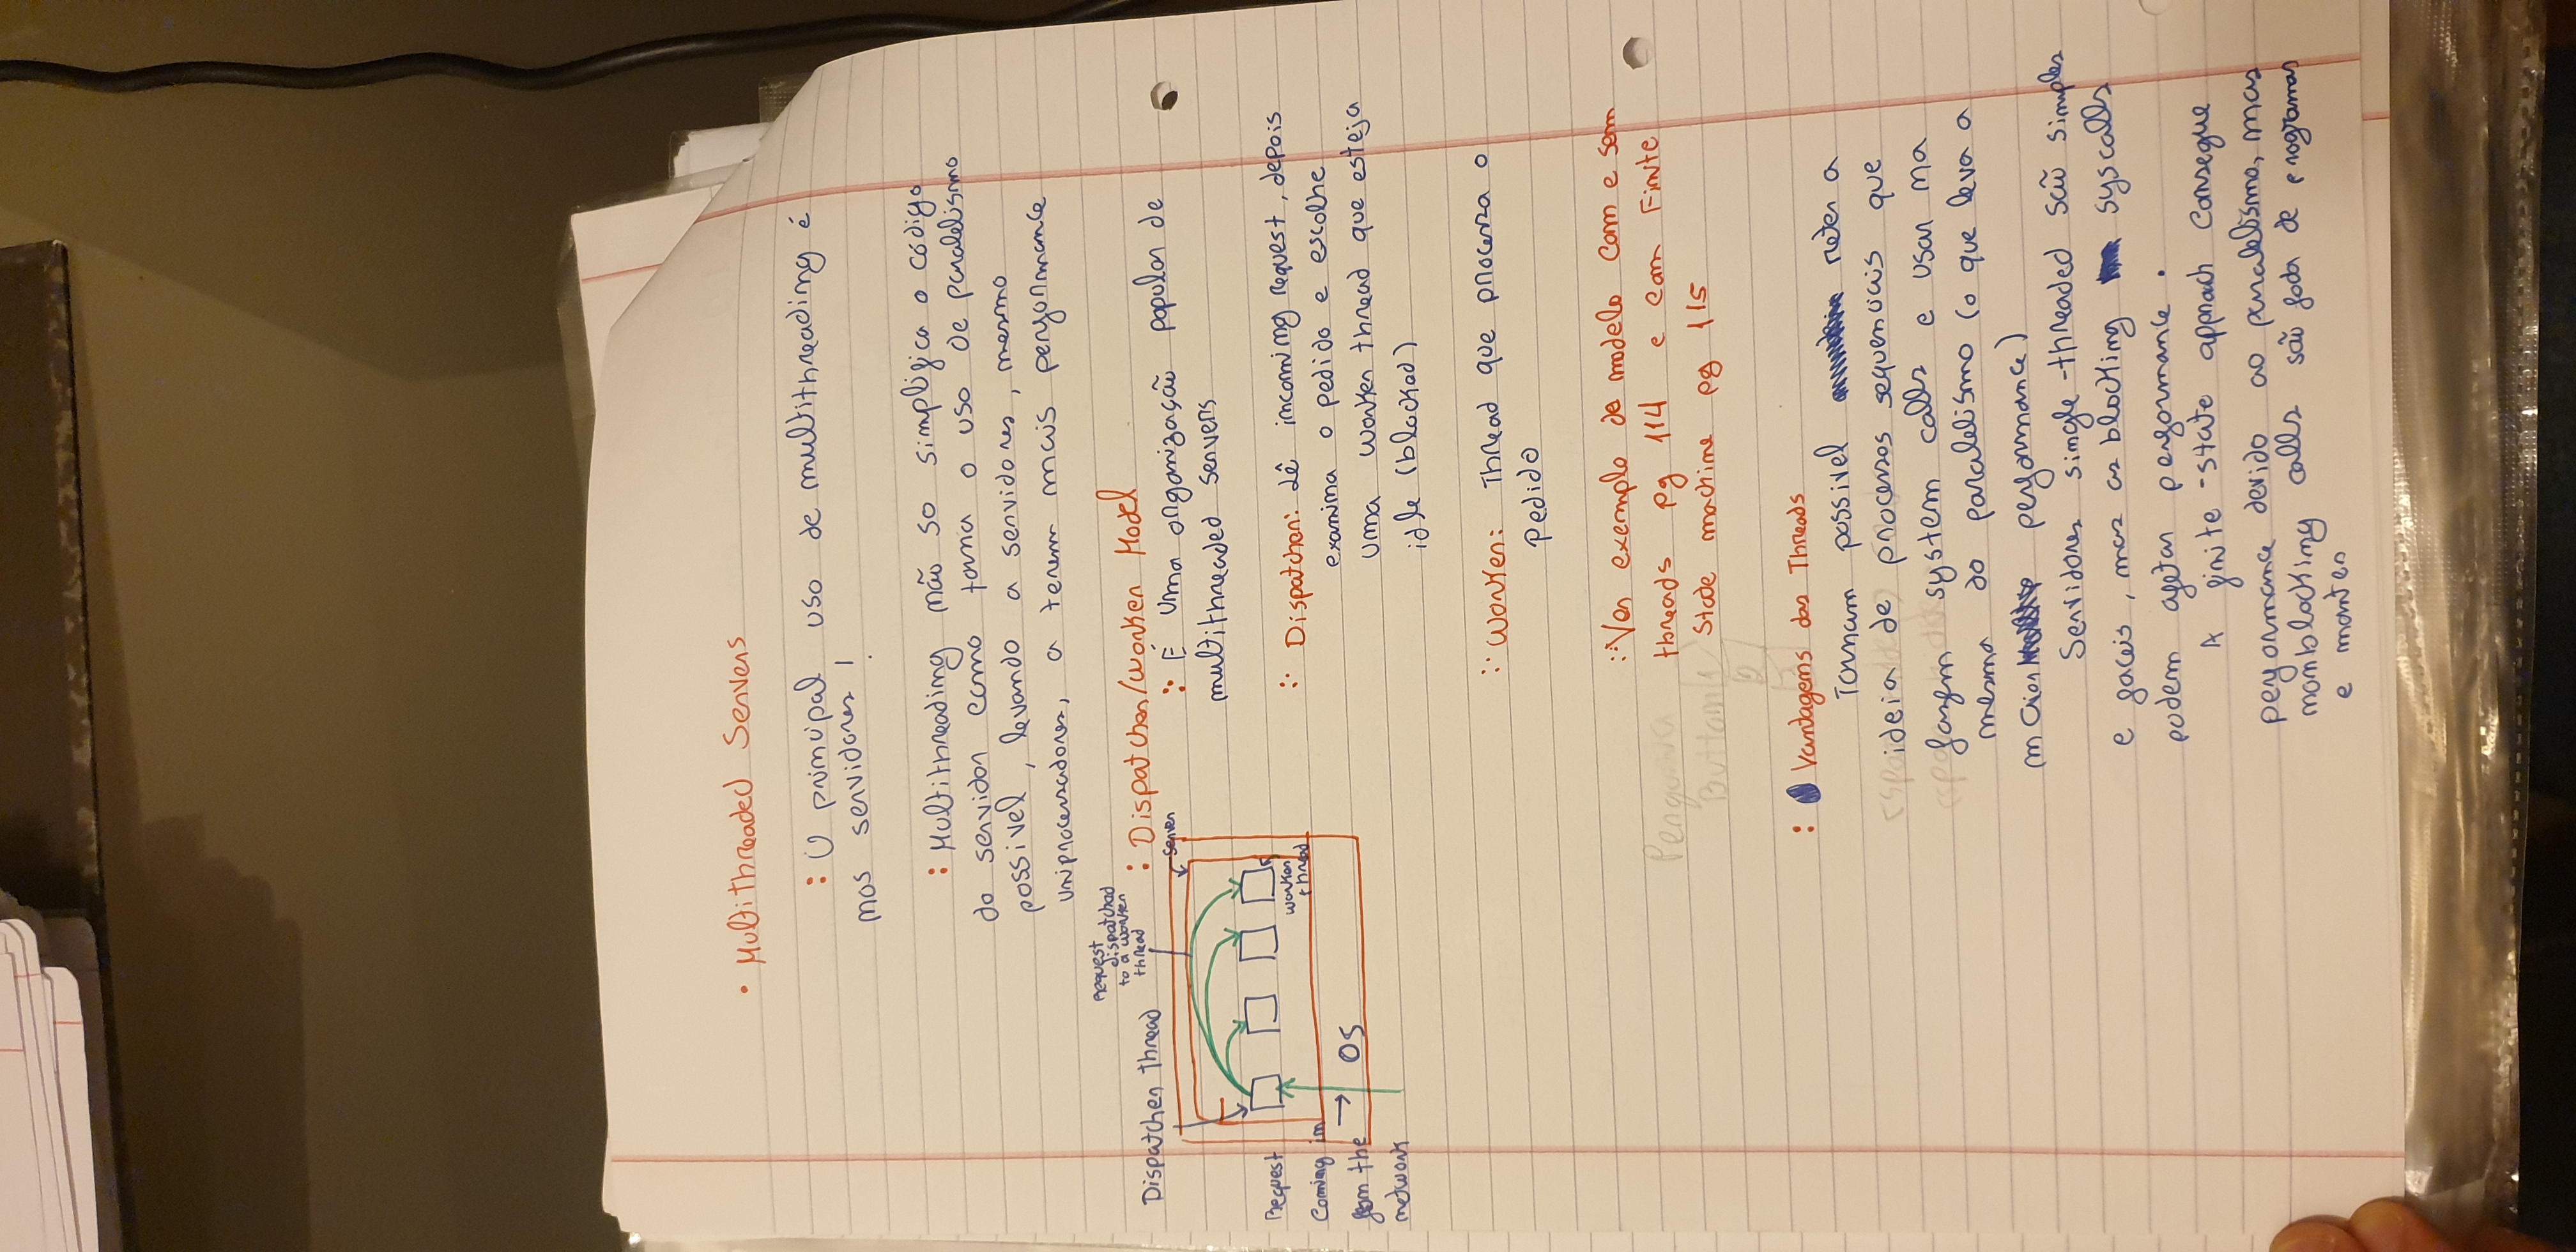 • Multithreaded Servers
: O principal uso de multithreading é
nos servidores!
: Multithreading não so simplifica o código
do servidor como torna o uso de paralelismo
possivel, levando a servidores, mesmo
uniprocessadores, a terem mais performance
: Dispatcher/Worker Model
:· É uma organização popular de
multithreaded servers
Request
dispatched
to a worker
thread
Dispatcher thread
server
worker
thread
Request
Coming in
from the
network
OS
:· Dispatcher: Lê incoming request, depois
examina o pedido e escolhe
uma worker thread que esteja
idle (blocked)
:· Worker: Thread que processa o
pedido
:· Ver exemplo de modelo com e sem
threads pg 114 e com Finite
State machine pg 115
: Vantagens das Threads
Tornam possivel reter a
ideia de processos sequenciais que
fazem system calls e usar na
mesma do paralelismo (o que leva a
maior performance)
Servidores single-threaded são simples
e faceis, mas as blocking syscalls
podem afetar performance.
A finite-state approach consegue
performance devido ao paralelismo, mas
nonblocking calls são foda de programar
e manter